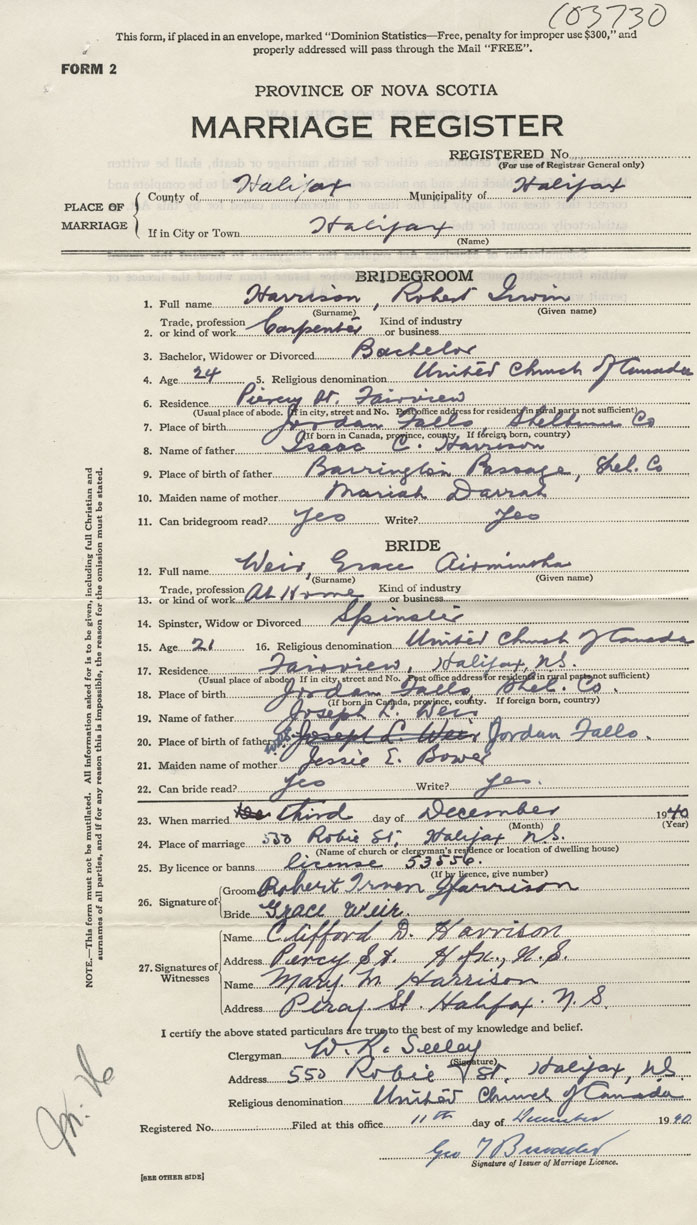 103730
This form, if placed in an envelope, marked "Dominion Statistics—Free, penalty for improper use $300," and
properly addressed will pass through the Mail "FREE".
FORM 2
PROVINCE OF NOVA SCOTIA
MARRIAGE REGISTER
REGISTERED No.
(For use of Registrar General only)
PLACE OF MARRIAGE
County of Halifax Municipality of Halifax
If in City or Town Halifax
(Name)
BRIDEGROOM
1. Full name Harrison, Robert Irwin
(Surname) (Given name)
2. Trade, profession or kind of work Carpenter Kind of industry or business
3. Bachelor, Widower or Divorced Bachelor
4. Age 24 5. Religious denomination United Church of Canada
6. Residence Piercy St. Fairview
(Usual place of abode. If in city, street and No. Post office address for residents in rural parts not sufficient)
7. Place of birth Jordan Falls, Shelburne Co
(If born in Canada, province, county. If foreign born, country)
8. Name of father Isaac C. Harrison
9. Place of birth of father Barrington Passage, Shel. Co
10. Maiden name of mother Mariah Darrah
11. Can bridegroom read? Yes Write? Yes
BRIDE
12. Full name Weir, Grace
(Surname) (Given name)
13. Trade, profession or kind of work At Home Kind of industry or business
14. Spinster, Widow or Divorced Spinster
15. Age 21 16. Religious denomination United Church of Canada
17. Residence Fairview, Halifax, N.S.
(Usual place of abode. If in city, street and No. Post office address for residents in rural parts not sufficient)
18. Place of birth Jordan Falls, Shel. Co.
(If born in Canada, province, county. If foreign born, country)
19. Name of father Joseph L. Weir
20. Place of birth of father Joseph L. Weir Jordan Falls.
21. Maiden name of mother Jessie E. Bower
22. Can bride read? yes Write? yes.
23. When married third day of December 1940
(Month) (Year)
24. Place of marriage 550 Robie St, Halifax N.S.
(Name of church or clergyman's residence or location of dwelling house)
25. By licence or banns license 53556.
(If by licence, give number)
26. Signature of
Groom Robert Irven Harrison
Bride Grace Weir.
27. Signatures of Witnesses
Name Clifford D. Harrison
Address Percy St. Hfx., N.S.
Name Mary M Harrison
Address St. Halifax. N.S.
I certify the above stated particulars are true to the best of my knowledge and belief.
Clergyman W. R. Seeley
(Signature)
Address 550 Robie St. Halifax, N.S.
Religious denomination United Church of Canada
Registered No. Filed at this office 11th day of December 1940
Geo
Signature of Issuer of Marriage Licence.
[SEE OTHER SIDE]
NOTE.—This form must not be mutilated. All information asked for is to be given, including full Christian and
surnames of all parties, and if for any reason this is impossible, the reason for the omission must be stated.